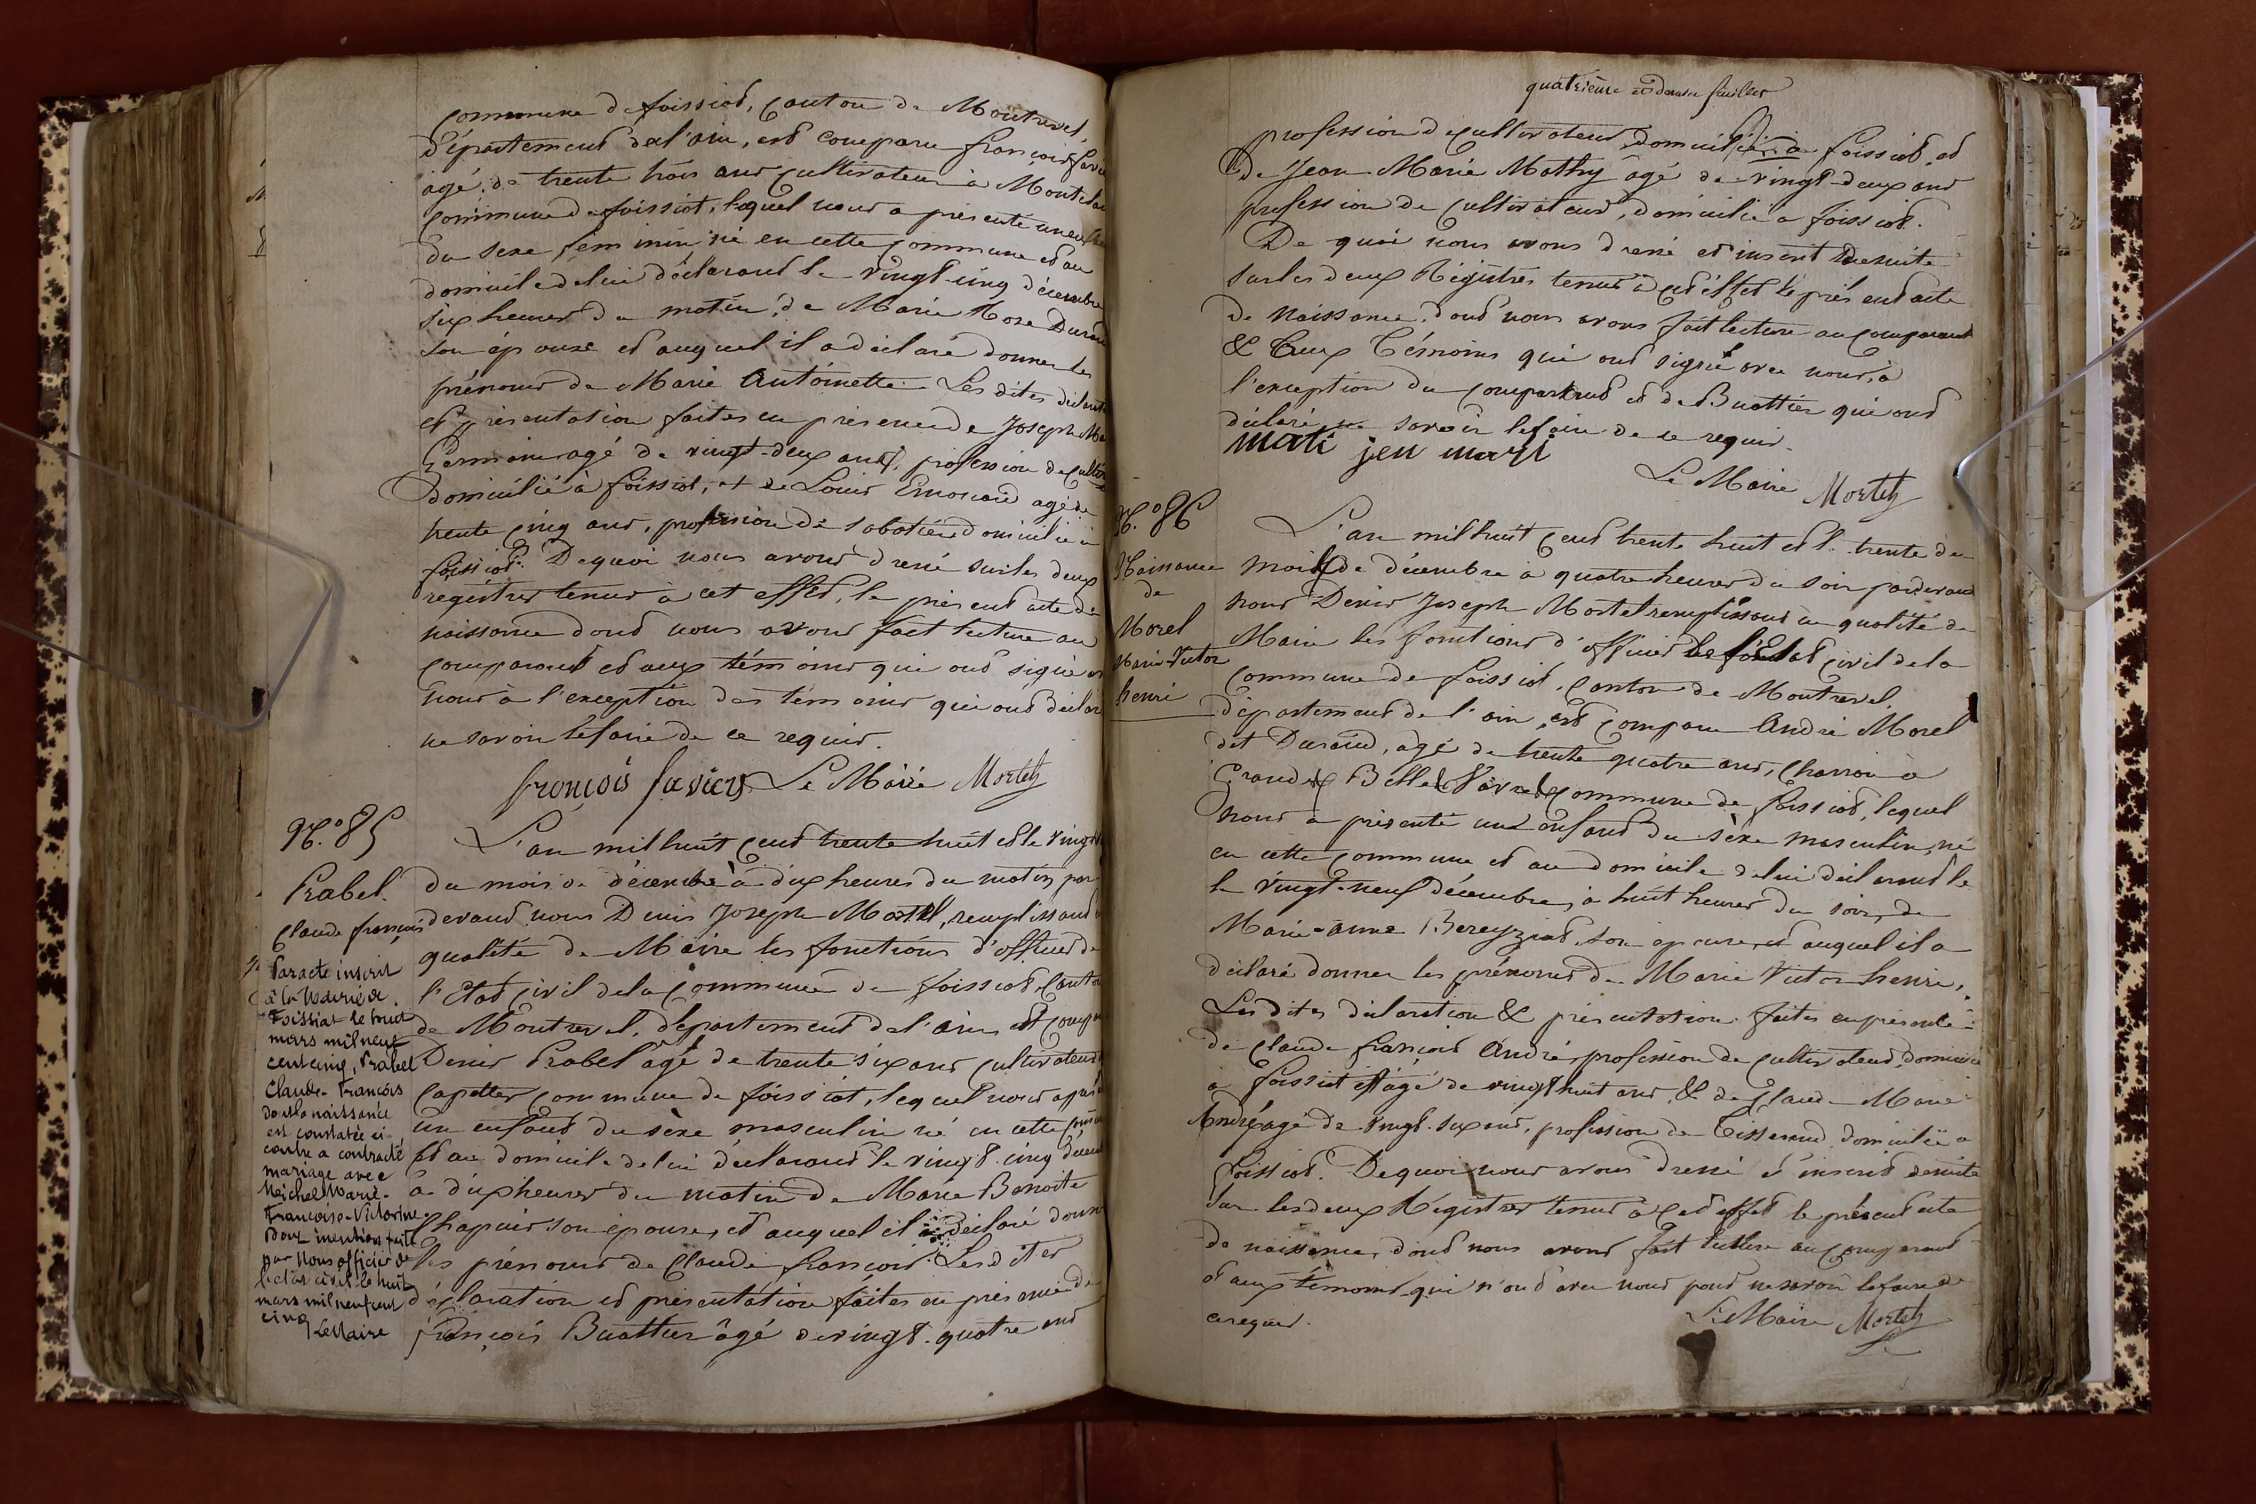 commune de foissiat, Canton de Montrevel,
département de l'ain, est comparu françois
agé de trente trois ans cultivateur à
commune de foissiat, lequel nous a présenté
du sexe féminin né en cette commune et au
domicile de lui déclarant le vingt-cinq décembre
six heures du matin, de Marie Rose
son épouse et auquel il a déclaré donner les
prénoms de Marie Antoinette. Les dites
et présentation faites en présence de Joseph
agé de vingt-deux ans, profession de
domicilié à foissiat, et de Louis agé de
trente cinq ans, profession de sabotier domicilié à
foissiat. De quoi nous avons dressé sur les deux
registres tenus à cet effet, le présent acte de
naissance dont nous avons fait lecture au
comparant et aux témoins qui ont signé
nous à l'exception des témoins qui ont
ne savoir le faire de ce requis.
françois favier Le Maire Mortel
N.o 85
Prabel.
Claude françois
Par acte inscrit
à la Mairie de
Foissiat le huit
mars mil neuf
cent cinq, Prabel
Claude-François
dont la naissance
est constatée ci-
contre a contracté
mariage avec
Michel Marie-
Françoise-Victorine.
Dont mention faite
par nous officier de
l'état civil le huit
mars mil neuf cent
cinq
Le Maire
L'an mil huit cent trente huit et le
du mois de décembre à dix heures du matin par
devant nous Denis Joseph Mortel, remplissant
qualité de Maire les fonctions d'officier de
l'Etat civil de la commune de foissiat, Canton
de Montrevel, département de l'ain est
Denis Prabel agé de trente six ans cultivateur
commune de foissiat, lequel nous a
un enfant du sèxe masculin né en cette
et au domicile de lui déclarant le vingt-cinq
à dix heures du matin de Marie Benoite
Chapuis son épouse, et auquel il a déclaré
les prénoms de Claude françois. Les dites
déclaration et présentation faites en présence de
françois Buattier âgé de vingt-quatre ans
quatrième et dernier feuillet
profession de cultivateur, domicilié à foissiat, et
de Jean Marie Mathy âgé de vingt-deux ans
profession de cultivateur, domicilié à foissiat.
De quoi nous avons dressé et inscrit de suite
sur les deux Régistres tenus à cet effet le présent acte
de naissance, dont nous avons fait lecture au comparant
& aux Témoins qui ont signé avec nous, à
l'exception du comparant et de Buattier qui ont
déclaré ne savoir le faire de ce requis.
mati jen mari
Le Maire Mortel
N.o 86
Naissance
de
Morel
Marie Victor
henri
L'an mil huit cent trente huit et le trente du
mois de décembre à quatre heures du soir par devant
nous Denis Joseph Mortel remplissant en qualité de
Maire les fonctions d'officier de l'Etat civil de la
commune de foissiat, canton de Montrevel,
département de l'ain, est comparu André Morel
dit Durand, agé de trente quatre ans, charron à
commune de foissiat, lequel
nous a présenté un enfant du sèxe masculin, né
en cette commune et au domicile de lui déclarant le
le vingt-neuf décembre, à huit heures du soir, de
Marie-anne Bereyziat son épouse, et auquel il a
déclaré donner les prénoms de Marie Victor henri,
Les dites déclaration & présentation faites en présence
de Claude françois André, profession de cultivateur, domicilié
à foissiat et âgé de vingt huit ans, & de Claude Marie
André agé de vingt-six ans, profession de Tisserand, domicilié à
foissiat. De quoi nous avons dressé et inscrit de suite
sur les deux Régistres tenus à cet effet le présent acte
de naissance, dont nous avons fait lecture au comparant
et aux témoins qui n'ont avec nous pour ne savoir le faire de
ce requis.
Le Maire Mortel